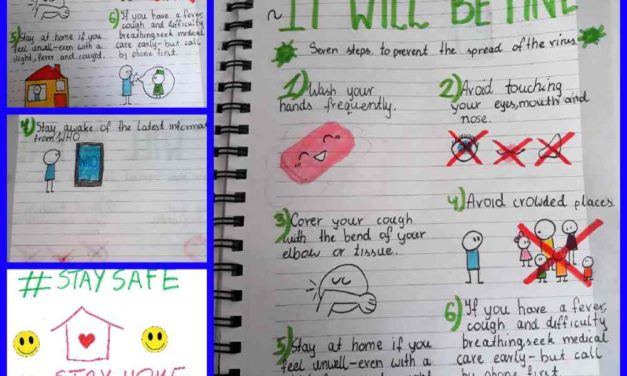 5) Stay at home if you
feel unwell-even with a
slight, fever and cought.
6) If you have a fever,
cough and difficulty
breathing seek medical
care early-but call
by phone first.
Stay awake of the latest informat
from WHO
WHO
#STAY SAFE
STAY HOME
~ IT WILL BE FINE
Seven steps to prevent the spread of the virus
1) Wash your
hands frequently.
2) Avoid touching
your eyes, mouth and
nose.
3) Cover your cough
with the bend of your
elbow or tissue.
4) Avoid crowded places.
5) Stay at home if you
feel unwell-even with a
slight, fever and cought.
6) If you have a fever,
cough and difficulty
breathing seek medical
care early-but call
by phone first.